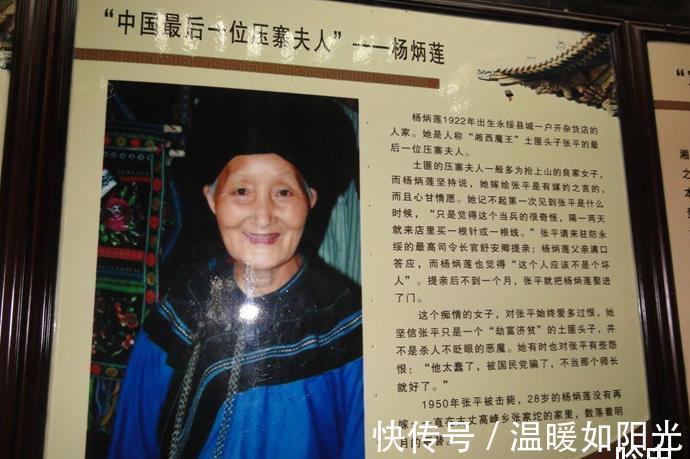 “中国最后一位压寨夫人”——杨炳莲
杨炳莲1922年出生永绥县城一户开杂货店的
人家。她是人称“湘西魔王”土匪头子张平的最
后一位压寨夫人。
土匪的压寨夫人一般多为抢上山的良家女子，
而杨炳莲坚持说，她嫁给张平是有媒妁之言的，
而且心甘情愿。她记不起第一次见到张平是什么
时候，“只是觉得这个当兵的很奇怪，隔一两天
就来店里买一根针或一根线。”张平请来驻防永
绥的最高司令长官舒安卿提亲；杨炳莲父亲满口
答应，而杨炳莲也觉得“这个人应该不是个坏
人”。提亲后不到一个月，张平就把杨炳莲娶进
了门。
这个痴情的女子，对张平始终爱多过恨，她
坚信张平只是一个“劫富济贫”的土匪头子，并
不是杀人不眨眼的恶魔。她有时也对张平有些怨
恨：“他太蠢了，被国民党骗了，不当那个师长
就好了。”
1950年张平被击毙，28岁的杨炳莲没有再
嫁，一直在古丈高峰乡张家坨的家里，数落着明
月
快传号 / 温暖如阳光
湘
之